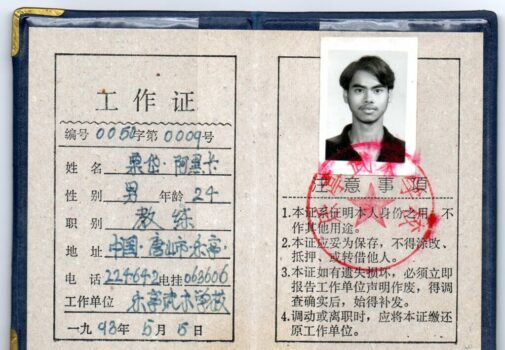 工作证
编号 005 字第 0009号
姓名 栗岱·阿里卡
性别 男 年龄 24
职别 教练
地址 中国·唐山市·乐亭·
电话 224642 电挂 063606
工作单位 乐亭武术学校
一九 93年 5月 5日
注意事项
1.本证系证明本人身份之用，不
作其他用途。
2.本证应妥为保存，不得涂改、
抵押、或转借他人。
3.本证如有遗失损坏，必须立即
报告工作单位声明作废，得调
查确实后，始得补发。
4.调动或离职时，应将本证缴还
原工作单位。